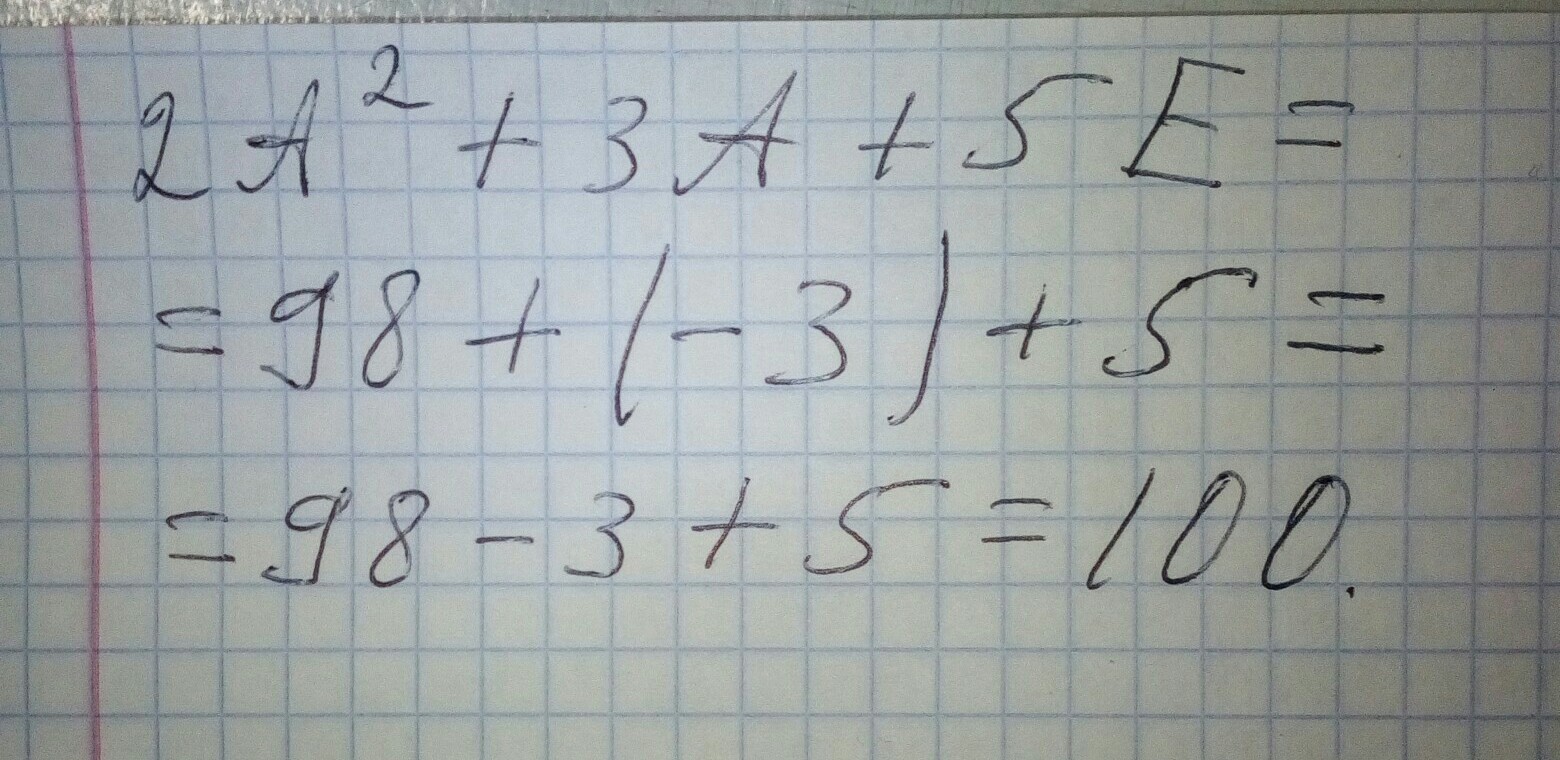 2A² + 3A + 5E =
= 98 + (-3) + 5 =
= 98 - 3 + 5 = 100.